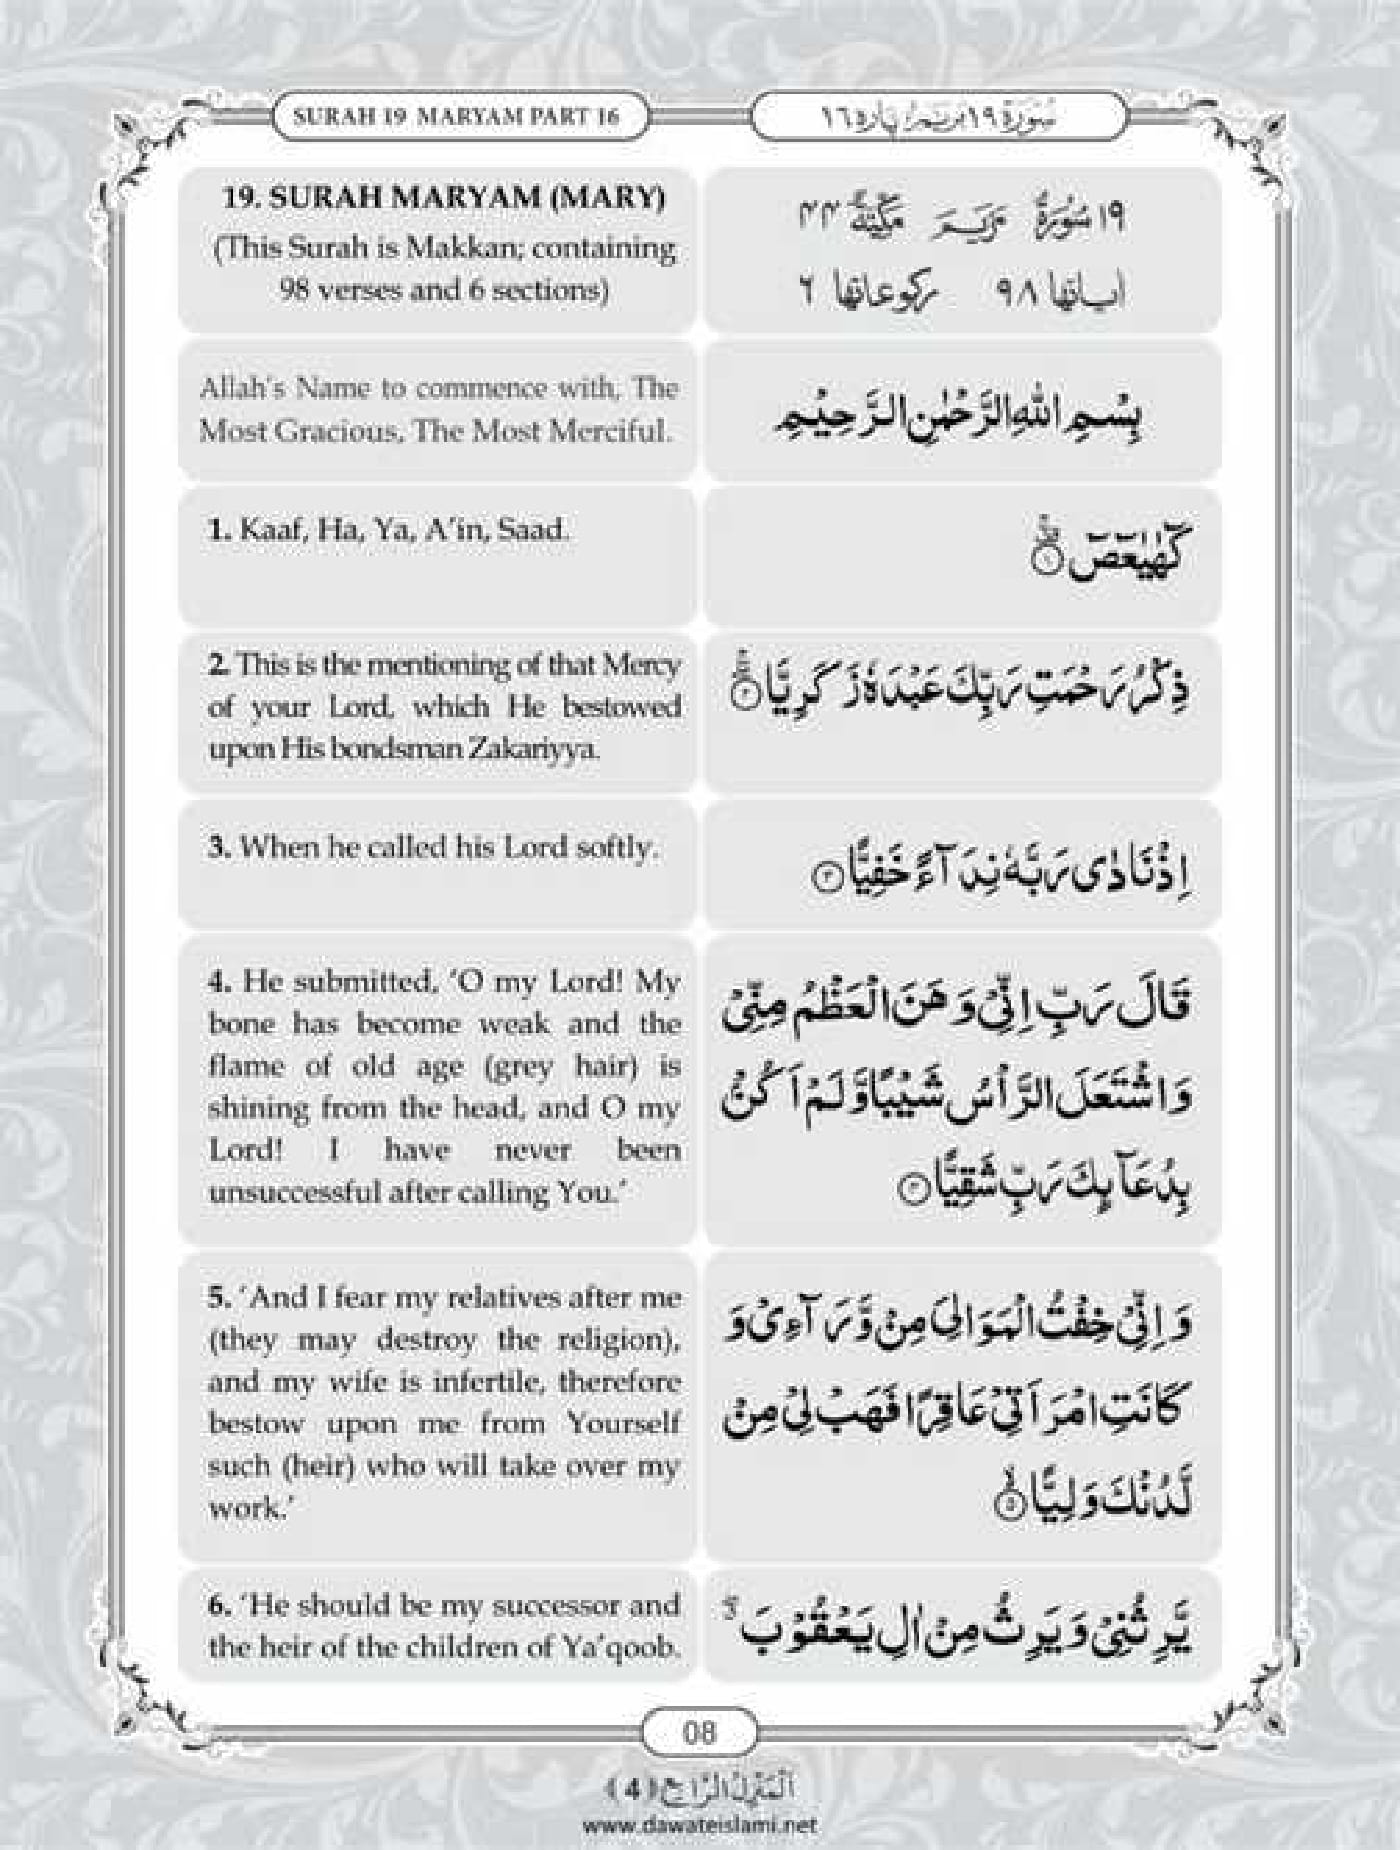 SURAH 19 MARYAM PART 16
سُوْرَة ١٩ مريم، پاره ١٦
19. SURAH MARYAM (MARY)
(This Surah is Makkan; containing
98 verses and 6 sections)
١٩ سُوْرَةُ مَرْيَمَ مَكِّيَّةٌ ٤٤
اٰياتها ٩٨ ركوعاتها ٦
Allah's Name to commence with, The
Most Gracious, The Most Merciful.
بِسْمِ اللّٰهِ الرَّحْمٰنِ الرَّحِيْمِ
1. Kaaf, Ha, Ya, A'in, Saad.
كٓهٰيٰعٓصٓ ۟ۚ ﴿١﴾
2. This is the mentioning of that Mercy
of your Lord, which He bestowed
upon His bondsman Zakariyya.
ذِكْرُ رَحْمَتِ رَبِّكَ عَبْدَهٗ زَكَرِيَّا ﴿٢﴾
3. When he called his Lord softly.
اِذْ نَادٰى رَبَّهٗ نِدَآءً خَفِيًّا ﴿٣﴾
4. He submitted, ‘O my Lord! My
bone has become weak and the
flame of old age (grey hair) is
shining from the head, and O my
Lord! I have never been
unsuccessful after calling You.’
قَالَ رَبِّ اِنِّيْ وَهَنَ الْعَظْمُ مِنِّيْ
وَاشْتَعَلَ الرَّاْسُ شَيْبًا وَّلَمْ اَكُنْۢ
بِدُعَآىِٕكَ رَبِّ شَقِيًّا ﴿٤﴾
5. ‘And I fear my relatives after me
(they may destroy the religion),
and my wife is infertile, therefore
bestow upon me from Yourself
such (heir) who will take over my
work.’
وَاِنِّيْ خِفْتُ الْمَوَالِيَ مِنْ وَّرَآءِيْ وَ
كَانَتِ امْرَاَتِيْ عَاقِرًا فَهَبْ لِيْ مِنْ
لَّدُنْكَ وَلِيًّا ﴿٥﴾
6. ‘He should be my successor and
the heir of the children of Ya'qoob.
يَّرِثُنِيْ وَيَرِثُ مِنْ اٰلِ يَعْقُوْبَ
08
اَلْمَنْزِلُ الرَّابِع ﴿4﴾
www.dawateislami.net